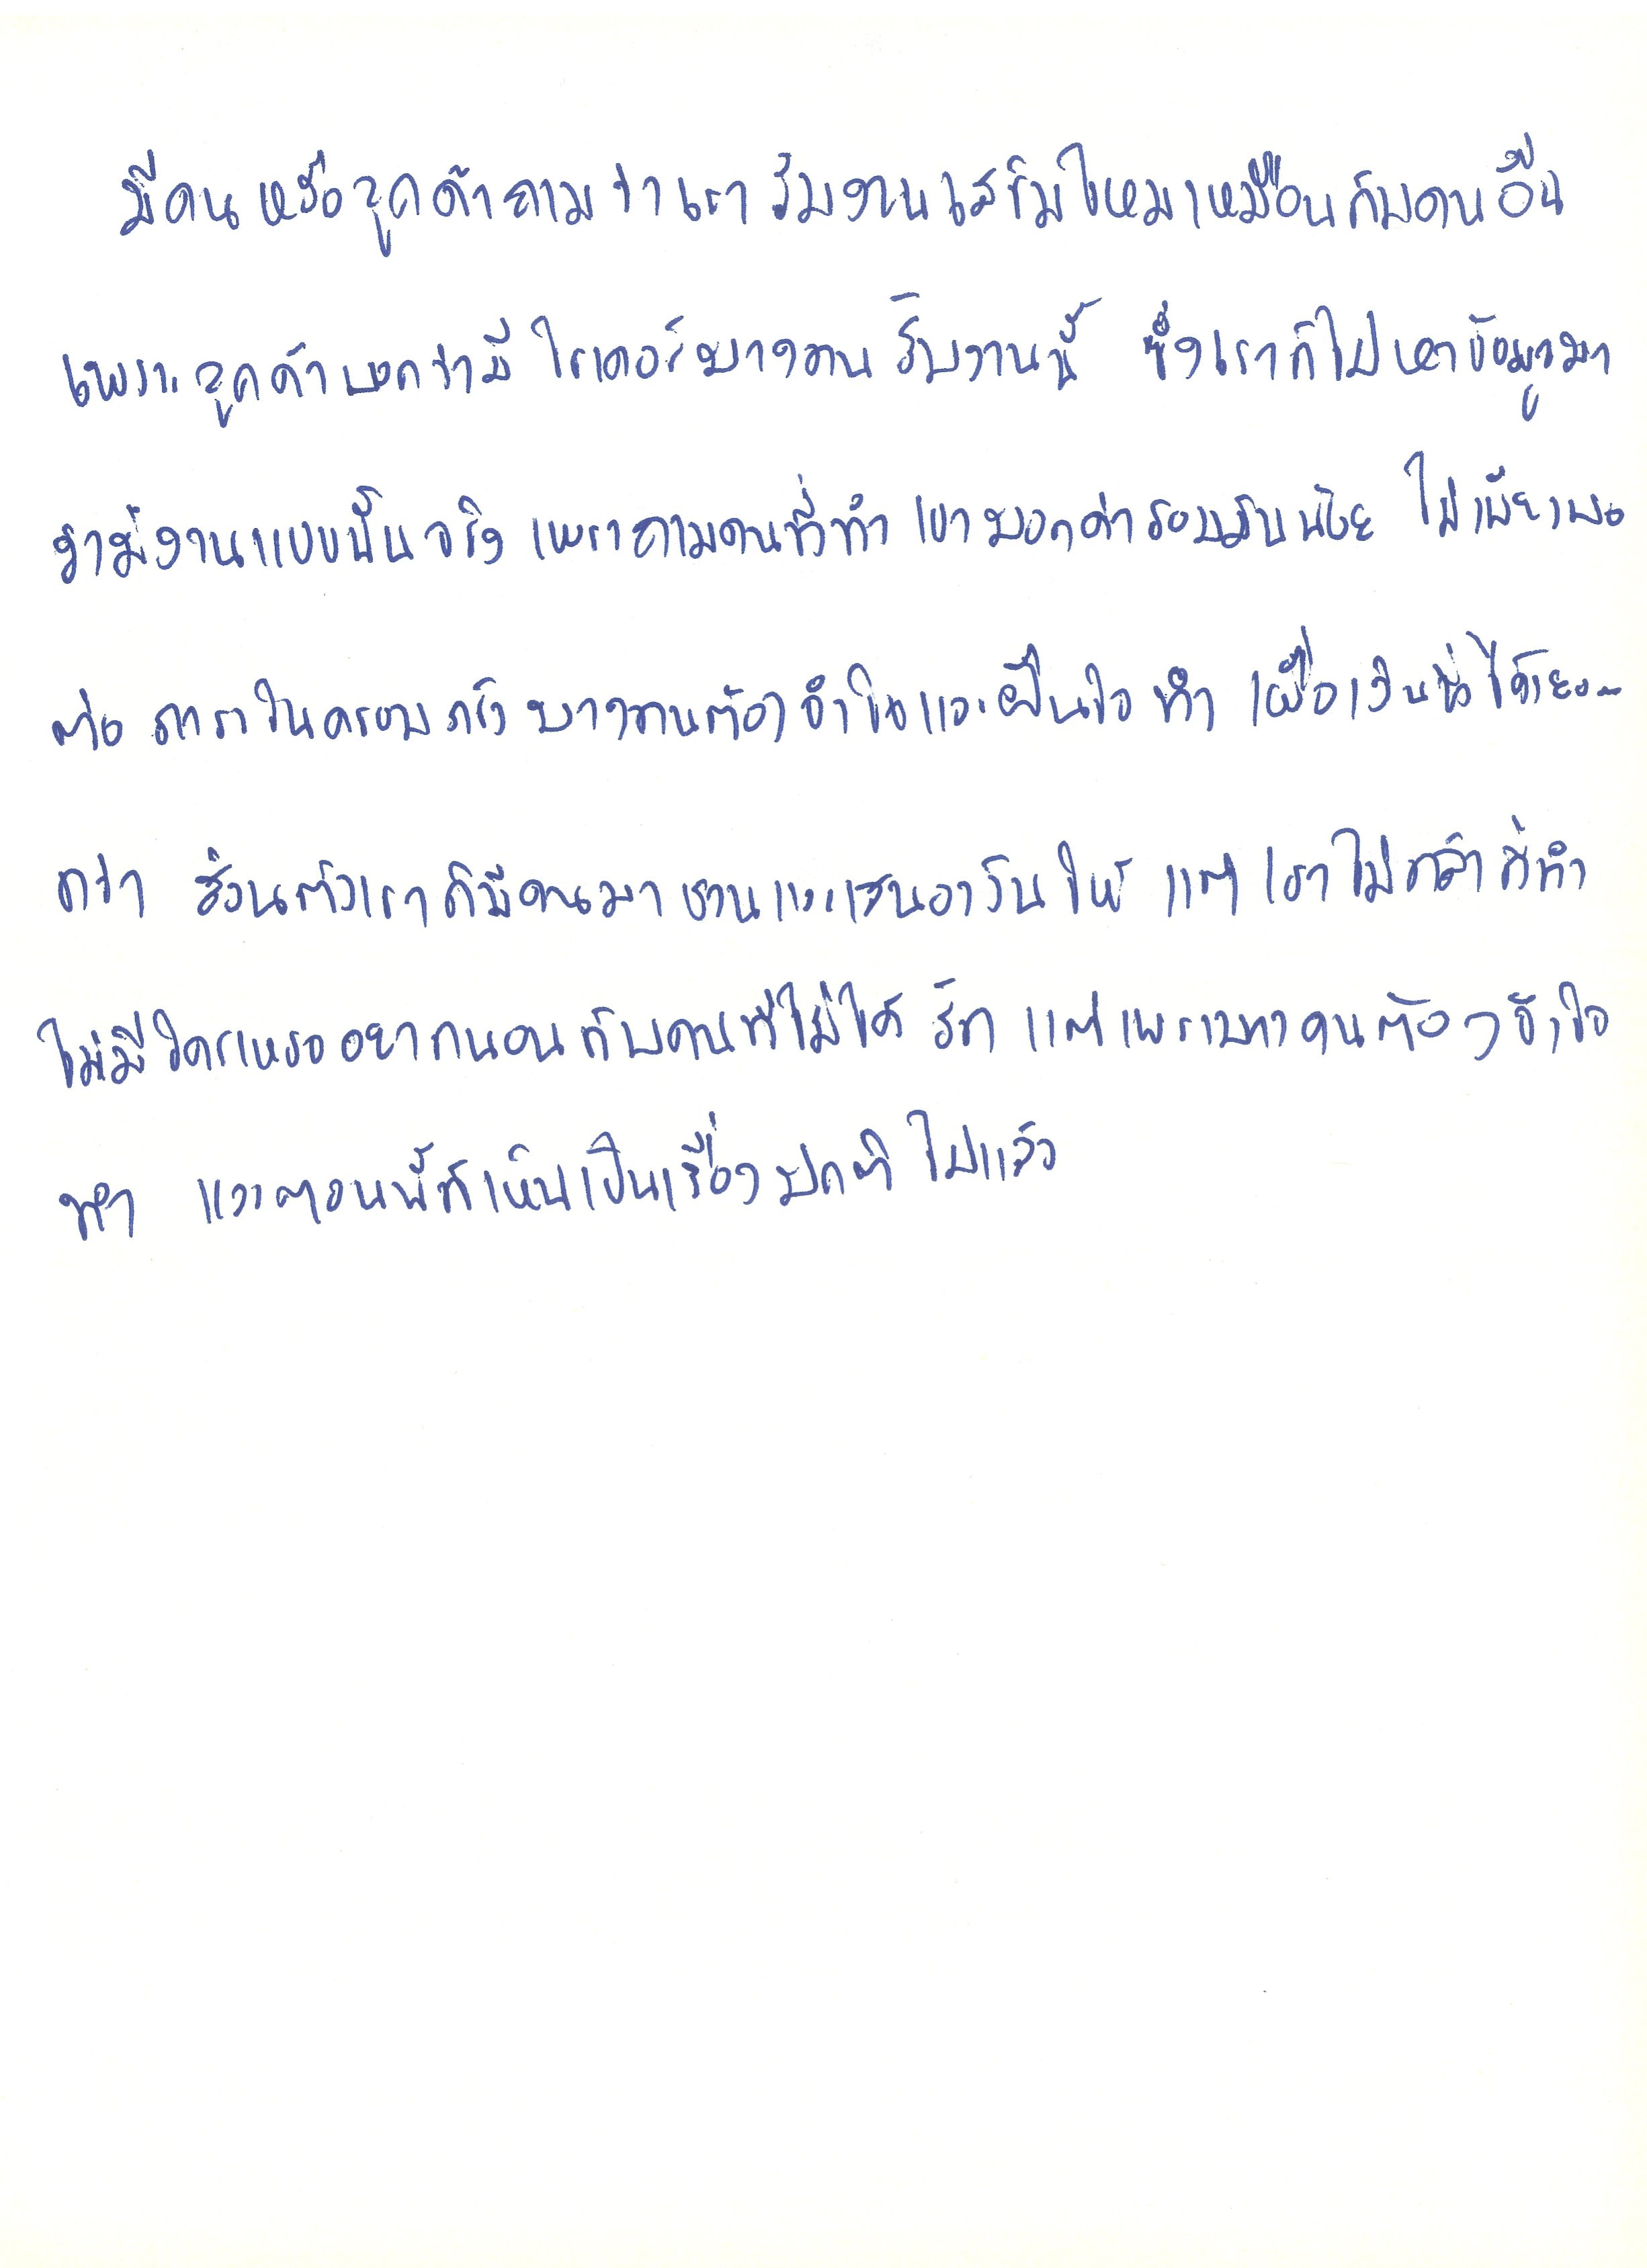 มีคนหรือลูกค้าถามว่าเรารับงานเสริมไหมเหมือนกับคนอื่น
เพราะลูกค้าบอกว่ามีไรเดอร์บางคนรับงานนี้ ซึ่งเราก็ไปหาข้อมูลมา
ว่ามีงานแบบนั้นจริง เพราะถามคนที่ทำ เขาบอกค่ารอบมันน้อย ไม่เพียงพอ
ต่อภาระในครอบครัว บางคนต้องจำใจและฝืนใจทำ เพื่อเงินที่ได้เยอะ
กว่า ส่วนตัวเราก็มีคนมาชวนและเสนอเงินให้ แต่เราไม่กล้าที่ทำ
ไม่มีใครเหรออยากนอนกับคนที่ไม่ได้รัก แต่เพราะบางคนต้องจำใจ
ทำ และตอนนี้ก็เห็นเป็นเรื่องปกติไปแล้ว